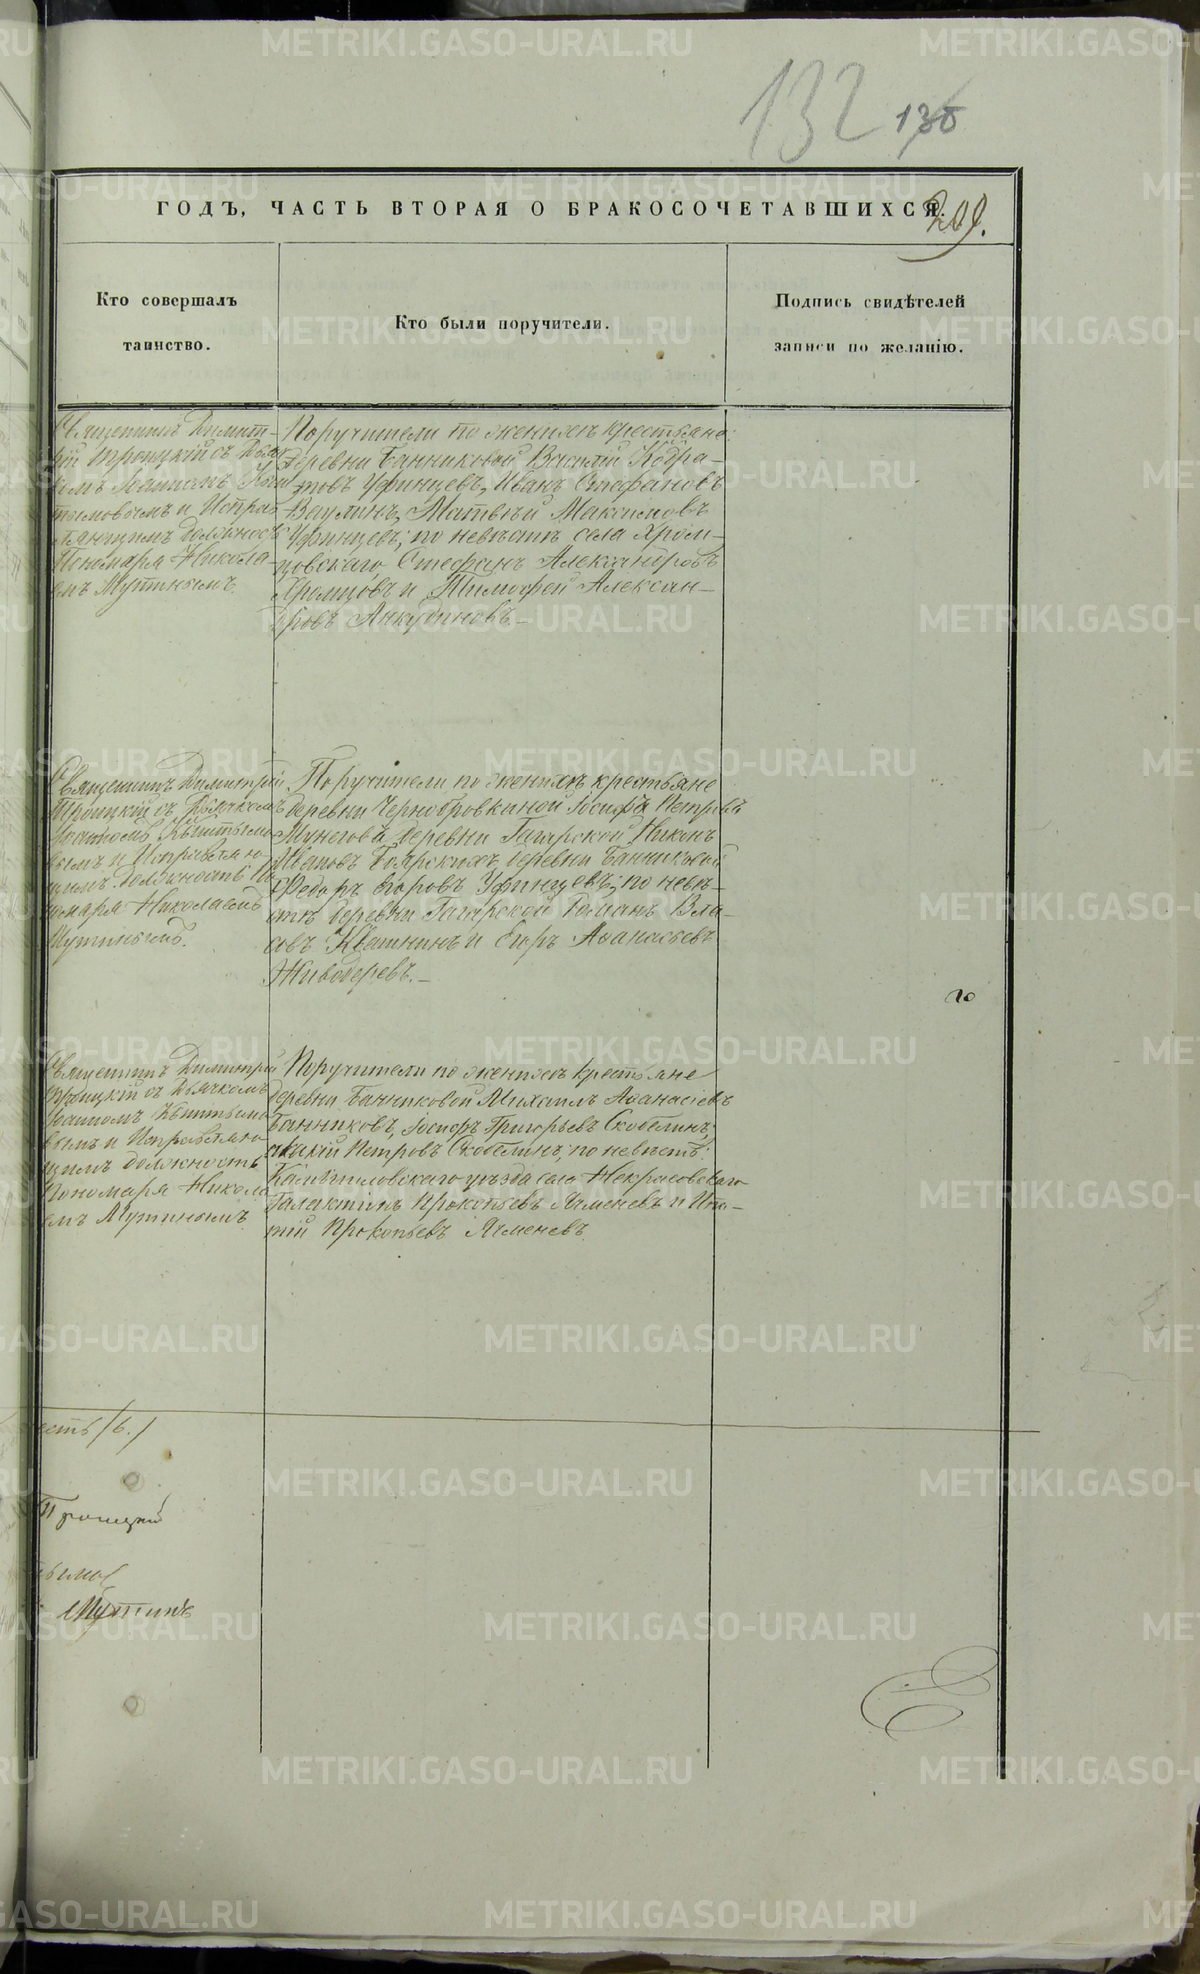 132 130
ГОДЪ, ЧАСТЬ ВТОРАЯ О БРАКОСОЧЕТАВШИХСЯ.
209.
Кто совершалъ
таинство.
Кто были поручители.
Подпись свидѣтелей
записи по желанію.
Священникъ Димит-
рій Троицкій съ Дьяч-
комъ Іоанномъ Кыш
тымовымъ и Исправ
ляющимъ должность
Пономаря Никола-
емъ Мутинымъ.
Поручители по женихѣ крестьяне:
деревни Банниковой Василій Кодра-
товъ Уфинцевъ, Иванъ Стефановъ
Ваулинъ, Матвѣй Максимовъ
Уфинцевъ; по невѣстѣ села Хром-
цовскаго Стефанъ Александровъ
Хромцовъ и Тимофей Алексан-
дровъ Анкудиновъ.
Священникъ Димитрій
Троицкій съ Дьячкомъ
Іоанномъ Кыштымо
вымъ и Исправляю
щимъ должность По
номаря Николаемъ
Мутинымъ.
Поручители по женихѣ крестьяне
деревни Чернобровкиной Іосифъ Петровъ
деревни Гагарской Никонъ
Ивановъ Боярскихъ, деревни Банниковой
Федоръ Егоровъ Уфинцевъ; по невѣ-
стѣ деревни Гагарской Романъ Вла-
совъ Квашнинъ и Егоръ Аѳанасьевъ
Живодеровъ.
Священникъ Димитрій
Троицкій съ Дьячкомъ
Іоанномъ Кыштымо
вымъ и Исправляю
щимъ должность
Пономаря Никола
емъ Мутинымъ.
Поручители по женихѣ крестьяне
деревни Банниковой Михаилъ Аѳанасьевъ
Банниковъ, Іосифъ Григорьевъ Скобелинъ,
Акакій Петровъ Скобелинъ; по невѣстѣ:
Камышловскаго уѣзда села Некрасовскаго
Галактіонъ Прокопьевъ Ячменевъ и Ипа-
тій Прокопьевъ Ячменевъ.
есть /6./
Троицкій
тымов
Мутинъ
METRIKI.GASO-URAL.RU